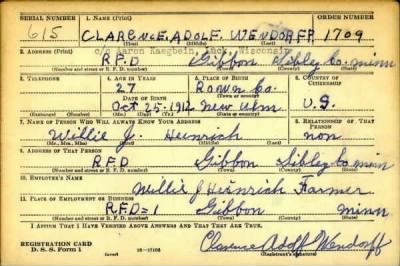 SERIAL NUMBER 1. NAME (Print) ORDER NUMBER
615 CLARENCE ADOLF WENDORFF 1709
(First) (Middle) (Last)
c/o Aaron Kaegbein, Luck, Wisconsin
2. ADDRESS (Print)
R.F.D Gibbon Sibley Co. Minn
(Number and street or R. F. D. number) (Town) (County) (State)
3. TELEPHONE 4. AGE IN YEARS 5. PLACE OF BIRTH 6. COUNTRY OF CITIZENSHIP
27 Brown Co.
(Town or county)
DATE OF BIRTH
Oct 25-1912 New Ulm U.S.
(Exchange) (Number) (Mo.) (Day) (Yr.) (State or country)
7. NAME OF PERSON WHO WILL ALWAYS KNOW YOUR ADDRESS 8. RELATIONSHIP OF THAT PERSON
Willie J. Heinrich non
(Mr., Mrs., Miss) (First) (Middle) (Last)
9. ADDRESS OF THAT PERSON
R.F.D Gibbon Sibley Co Minn
(Number and street or R. F. D. number) (Town) (County) (State)
10. EMPLOYER'S NAME
Willie J Heinrich Farmer
11. PLACE OF EMPLOYMENT OR BUSINESS
R.F.D=1 Gibbon Minn
(Number and street or R. F. D. number) (Town) (County) (State)
I AFFIRM THAT I HAVE VERIFIED ABOVE ANSWERS AND THAT THEY ARE TRUE.
REGISTRATION CARD
D. S. S. Form 1 (over) 16-17105
Clarence Adolf Wendorff
(Registrant's signature)